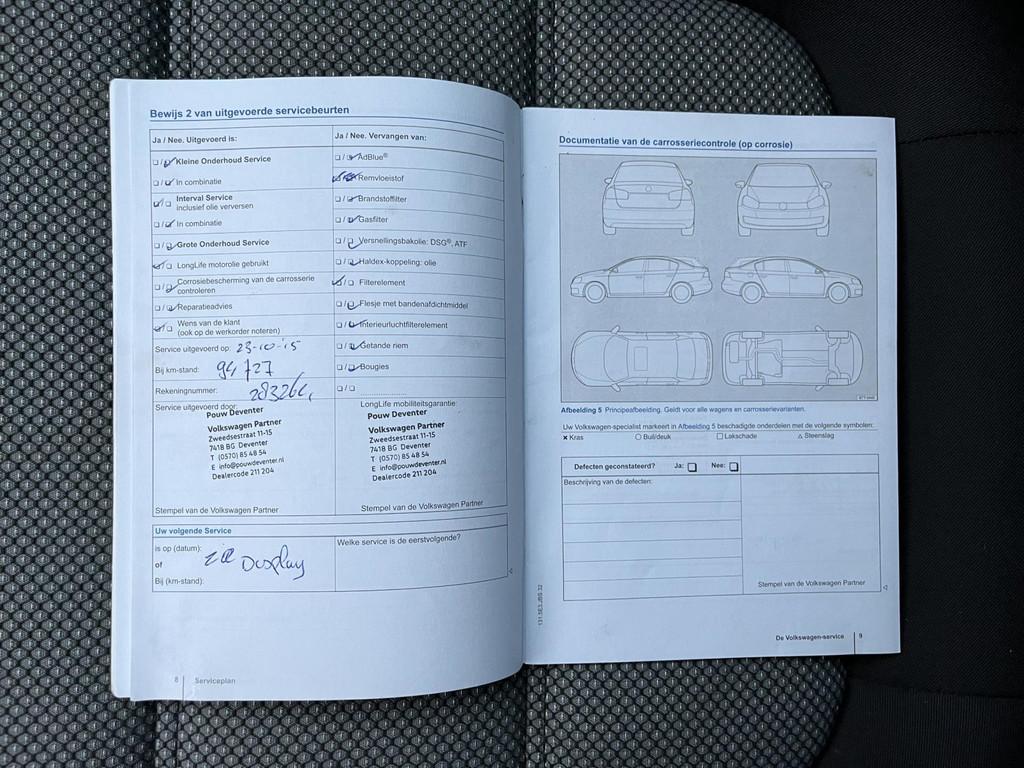 Bewijs 2 van uitgevoerde servicebeurten
Ja / Nee. Uitgevoerd is:
☐ / ☑ Kleine Onderhoud Service
☐ / ☑ In combinatie
☑ / ☐ Interval Service
inclusief olie verversen
☐ / ☑ In combinatie
☐ / ☑ Grote Onderhoud Service
☑ / ☐ LongLife motorolie gebruikt
☐ / ☑ Corrosiebescherming van de carrosserie
controleren
☐ / ☑ Reparatieadvies
☑ / ☐ Wens van de klant
(ook op de werkorder noteren)
Service uitgevoerd op: 23-10-'15
Bij km-stand: 94727
Rekeningnummer:
Service uitgevoerd door:
Pouw Deventer
Volkswagen Partner
Zweedsestraat 11-15
7418 BG Deventer
T (0570) 85 48 54
E info@pouwdeventer.nl
Dealercode 211 204
Stempel van de Volkswagen Partner
Ja / Nee. Vervangen van:
☐ / ☑ AdBlue®
Remvloeistof
☐ / ☑ Brandstoffilter
☐ / ☑ Gasfilter
☐ / ☑ Versnellingsbakolie: DSG®, ATF
☐ / ☑ Haldex-koppeling: olie
☑ / ☐ Filterelement
☐ / ☑ Flesje met bandenafdichtmiddel
☐ / ☑ Interieurluchtfilterelement
☐ / ☑ Getande riem
☐ / ☑ Bougies
☐ / ☐
LongLife mobiliteitsgarantie:
Pouw Deventer
Volkswagen Partner
Zweedsestraat 11-15
7418 BG Deventer
T (0570) 85 48 54
E info@pouwdeventer.nl
Dealercode 211 204
Stempel van de Volkswagen Partner
Uw volgende Service
is op (datum):
of
Bij (km-stand):
zie Display
Welke service is de eerstvolgende?
8 Serviceplan
Documentatie van de carrosseriecontrole (op corrosie)
Afbeelding 5 Principeafbeelding. Geldt voor alle wagens en carrosserievarianten.
Uw Volkswagen-specialist markeert in Afbeelding 5 beschadigde onderdelen met de volgende symbolen:
× Kras ○ Buil/deuk □ Lakschade △ Steenslag
Defecten geconstateerd? Ja: ☐ Nee: ☐
Beschrijving van de defecten:
Stempel van de Volkswagen Partner
De Volkswagen-service 9